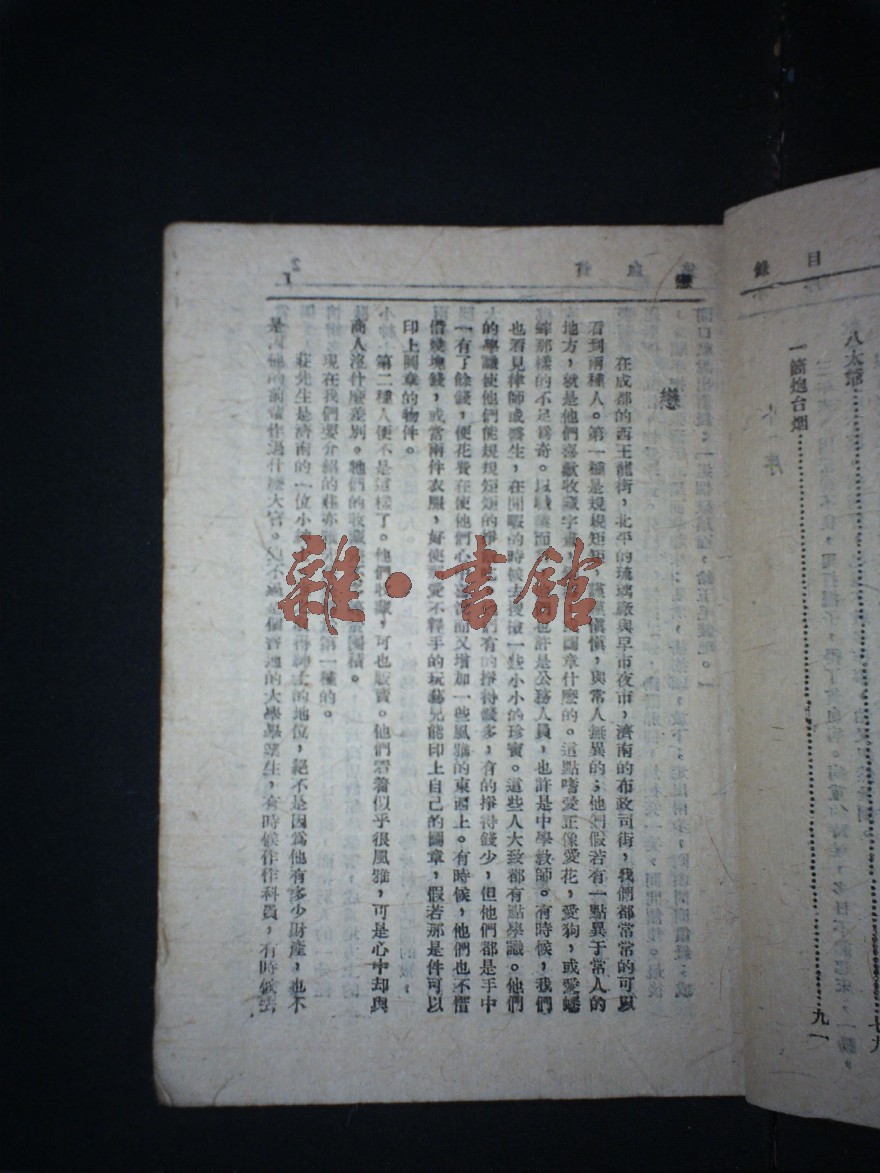 目錄
八太爺……七九
一筒炮台烟……九一
戀
1
戀
在成都的西王龍街，北平的琉璃廠與早市夜市，濟南的布政司街，我們都常常的可以
看到兩種人。第一種是規規矩矩，謹謹慎慎，與常人無異的；他們假若有一點異于常人的
地方，就是他們喜歡收藏字畫 圖章什麼的。這點嗜愛正像愛花，愛狗，或愛蟋
蟀那樣的不足爲奇。以職業而 也許是公務人員，也許是中學教師。有時候，我們
也看見律師或醫生，在閒暇的時候去 一些小小的珍寶。這些人大致都有點學識。他們
的學識使他們能規規矩矩的掙 們有的掙得錢多，有的掙得錢少，但他們都是手中
一有了餘錢，便花費在使他們心 品又增加一些風雅的東西上。有時候，他們也不惜
借幾塊錢，或當兩件衣服，好使 愛不釋手的玩藝兒能印上自己的圖章，假若那是件可以
印上圖章的物件。
第二種人便不是這樣了。他們收藏，可也販賣。他們看着似乎很風雅，可是心中却與
商人沒什麼差別。他們的收藏 囤積。
現在我們要介紹的莊亦 第一種的。
莊先生是濟南的一位小 的地位，絕不是因爲他有多少財產，也不
是因他的前輩作過什麼大官。他不過是個普通的大學畢業生，有時候作作科員，有時候去
雜·書館